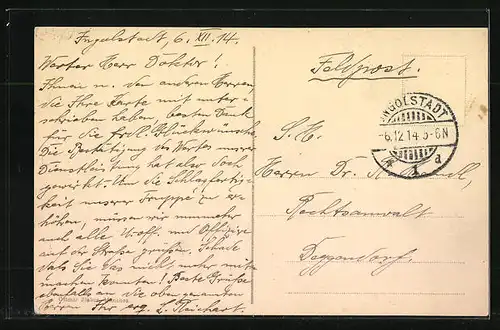 Ingolstadt, 6. XII. 14.
Werter Herr Doktor!
Ihnen u. den anderen Herren,
die Ihre Karte mit unter-
schrieben haben, besten Dank
für die frdl. Glückwünsche.
Die Bestätigung des Wertes unserer
Dienstleistung hat also doch
gewirkt. Um die Schlagfertig-
keit unserer Truppe zu er-
höhen, müssen wir nunmehr
auch alle Uroff. und Offiziere
auf der Straße grüßen. Schade
daß Sie das nicht mehr mit-
machen konnten! Beste Grüße
ebenfalls an die oben genannten
Herren Ihr erg. L. Reichart.
Feldpost.
INGOLSTADT
-6.12.14. 5-6N
1 a
S. H.
Herrn Dr.
Rechtsanwalt
Deggendorf.